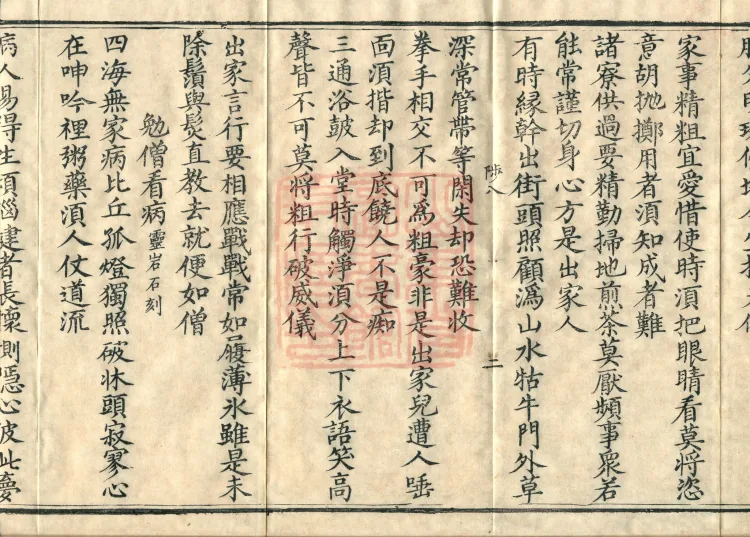 家事精粗宜愛惜使時湏把眼睛看莫將恣
意胡抛擲用者須知成者難
諸寮供過要精勤掃地煎茶莫厭頻事衆若
能常謹切身心方是出家人
有時縁幹出街頭照顧溈山水牯牛門外草
陟八
二
深常管帶等閑失却恐難收
拳手相交不可爲粗豪非是出家兒遭人唾
面湏揩却到底饒人不是痴
三通浴皷入堂時觸淨湏分上下衣語笑高
聲皆不可莫將粗行破威儀
出家言行要相應戰戰常如履薄氷雖是未
除鬚與髮直教去就便如僧
勉僧看病靈岩石刻
四海無家病比丘孤燈獨照破牀頭寂寥心
在呻吟裡粥藥湏人仗道流
病人易得生煩惱健者長懷惻隱心彼此夢